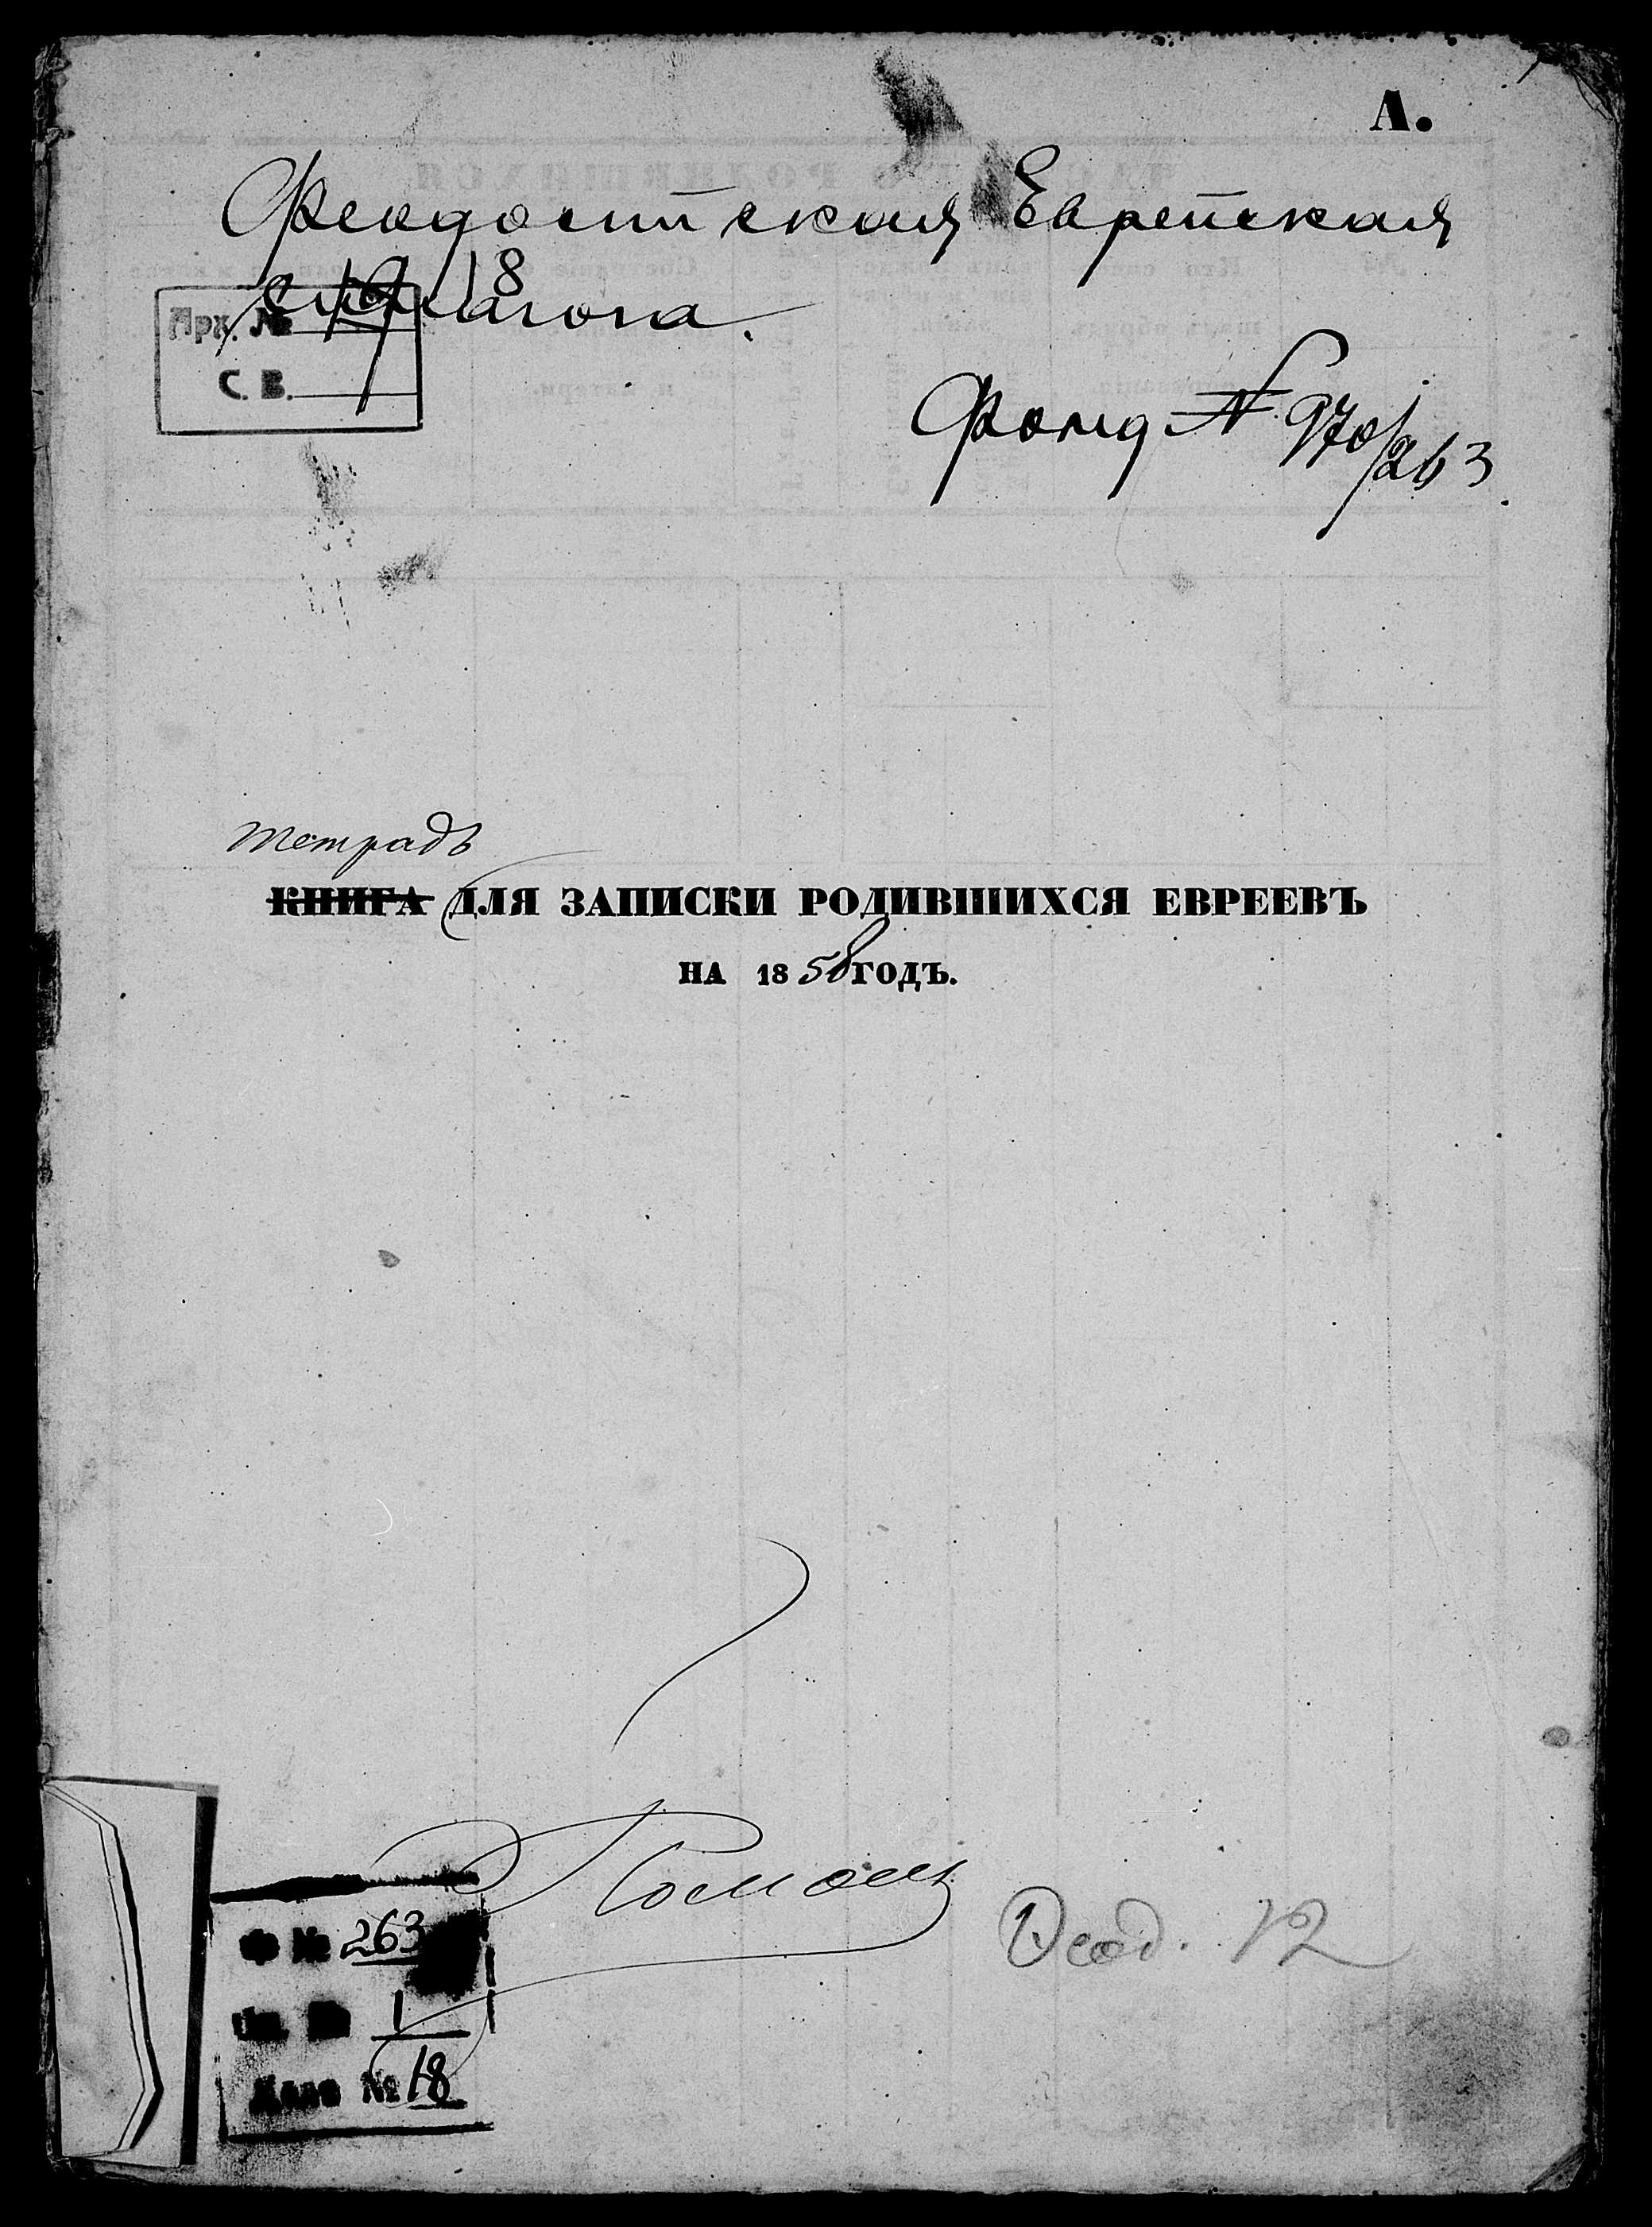 А.
Феодосийская Еврейская
синагога.
18
Арх. №
С. В.
Фонд № 970/263.
тетрадь
КНИГА ДЛЯ ЗАПИСКИ РОДИВШИХСЯ ЕВРЕЕВЪ
НА 1858 ГОДЪ.
Ф № 263
Оп. № 1
Дело № 18
Феод. 12